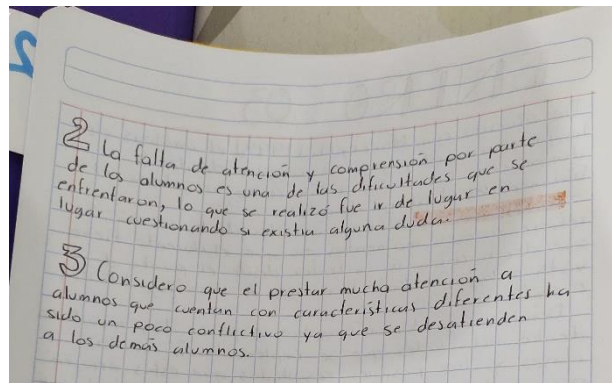 2 La falta de atención y comprensión por parte
de los alumnos es una de las dificultades que se
enfrentaron, lo que se realizó fue ir de lugar en
lugar cuestionando si existia alguna duda.
3 Considero que el prestar mucha atención a
alumnos que cuentan con características diferentes ha
sido un poco conflictivo ya que se desatienden
a los demás alumnos.